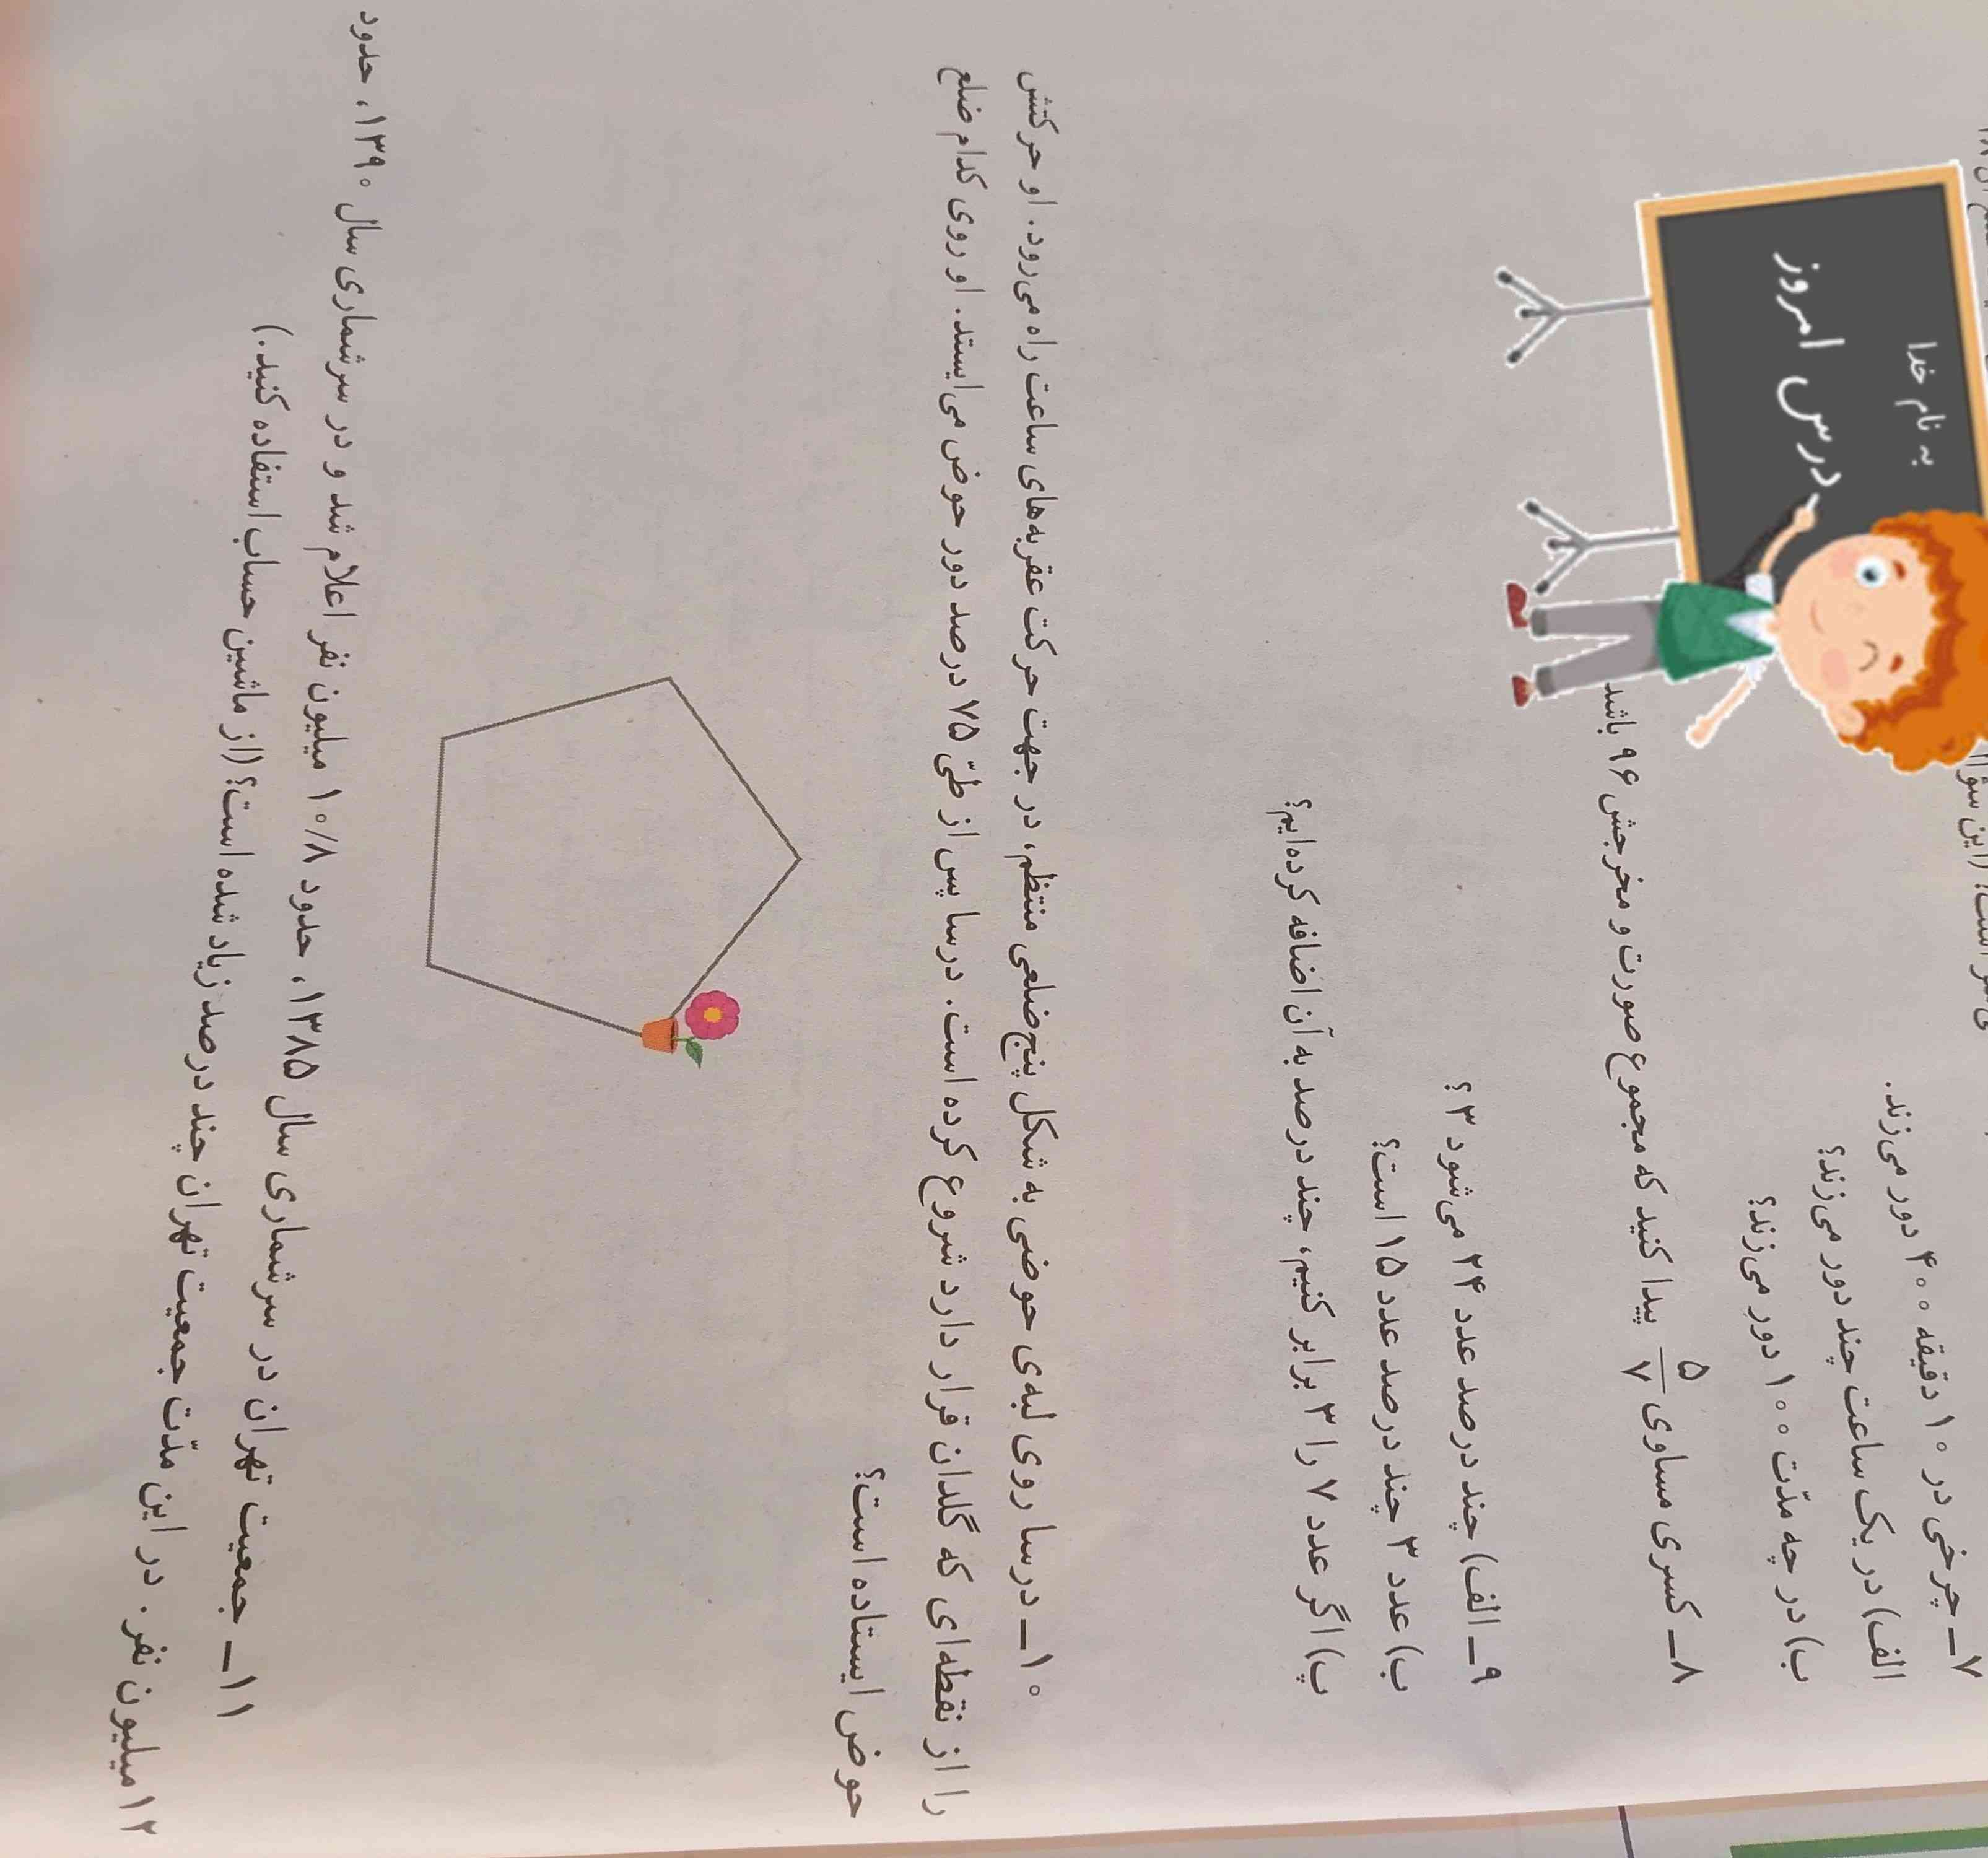 به نام خدا
درس امروز
۷ــ چرخی در ۱۰ دقیقه ۴۰۰ دور می‌زند.
الف) در یک ساعت چند دور می‌زند؟
ب) در چه مدّت ۱۰۰ دور می‌زند؟
۸ــ کسری مساوی ۵/۷ پیدا کنید که مجموع صورت و مخرجش ۹۶ باشد
۹ــ الف) چند درصد عدد ۲۴ می‌شود ۳ ؟
ب) عدد ۳ چند درصد عدد ۱۵ است؟
پ) اگر عدد ۷ را ۳ برابر کنیم، چند درصد به آن اضافه کرده‌ایم؟
۱۰ــ درسا روی لبه‌ی حوضی به شکل پنج‌ضلعی منتظم، در جهت حرکت عقربه‌های ساعت راه می‌رود. او حرکتش
را از نقطه‌ای که گلدان قرار دارد شروع کرده است. درسا پس از طیّ ۷۵ درصد دور حوض می‌ایستد. او روی کدام ضلع
حوض ایستاده است؟
۱۱ــ جمعیت تهران در سرشماری سال ۱۳۸۵، حدود ۱۰/۸ میلیون نفر اعلام شد و در سرشماری سال ۱۳۹۰، حدود
۱۲ میلیون نفر. در این مدّت جمعیت تهران چند درصد زیاد شده است؟ (از ماشین حساب استفاده کنید.)